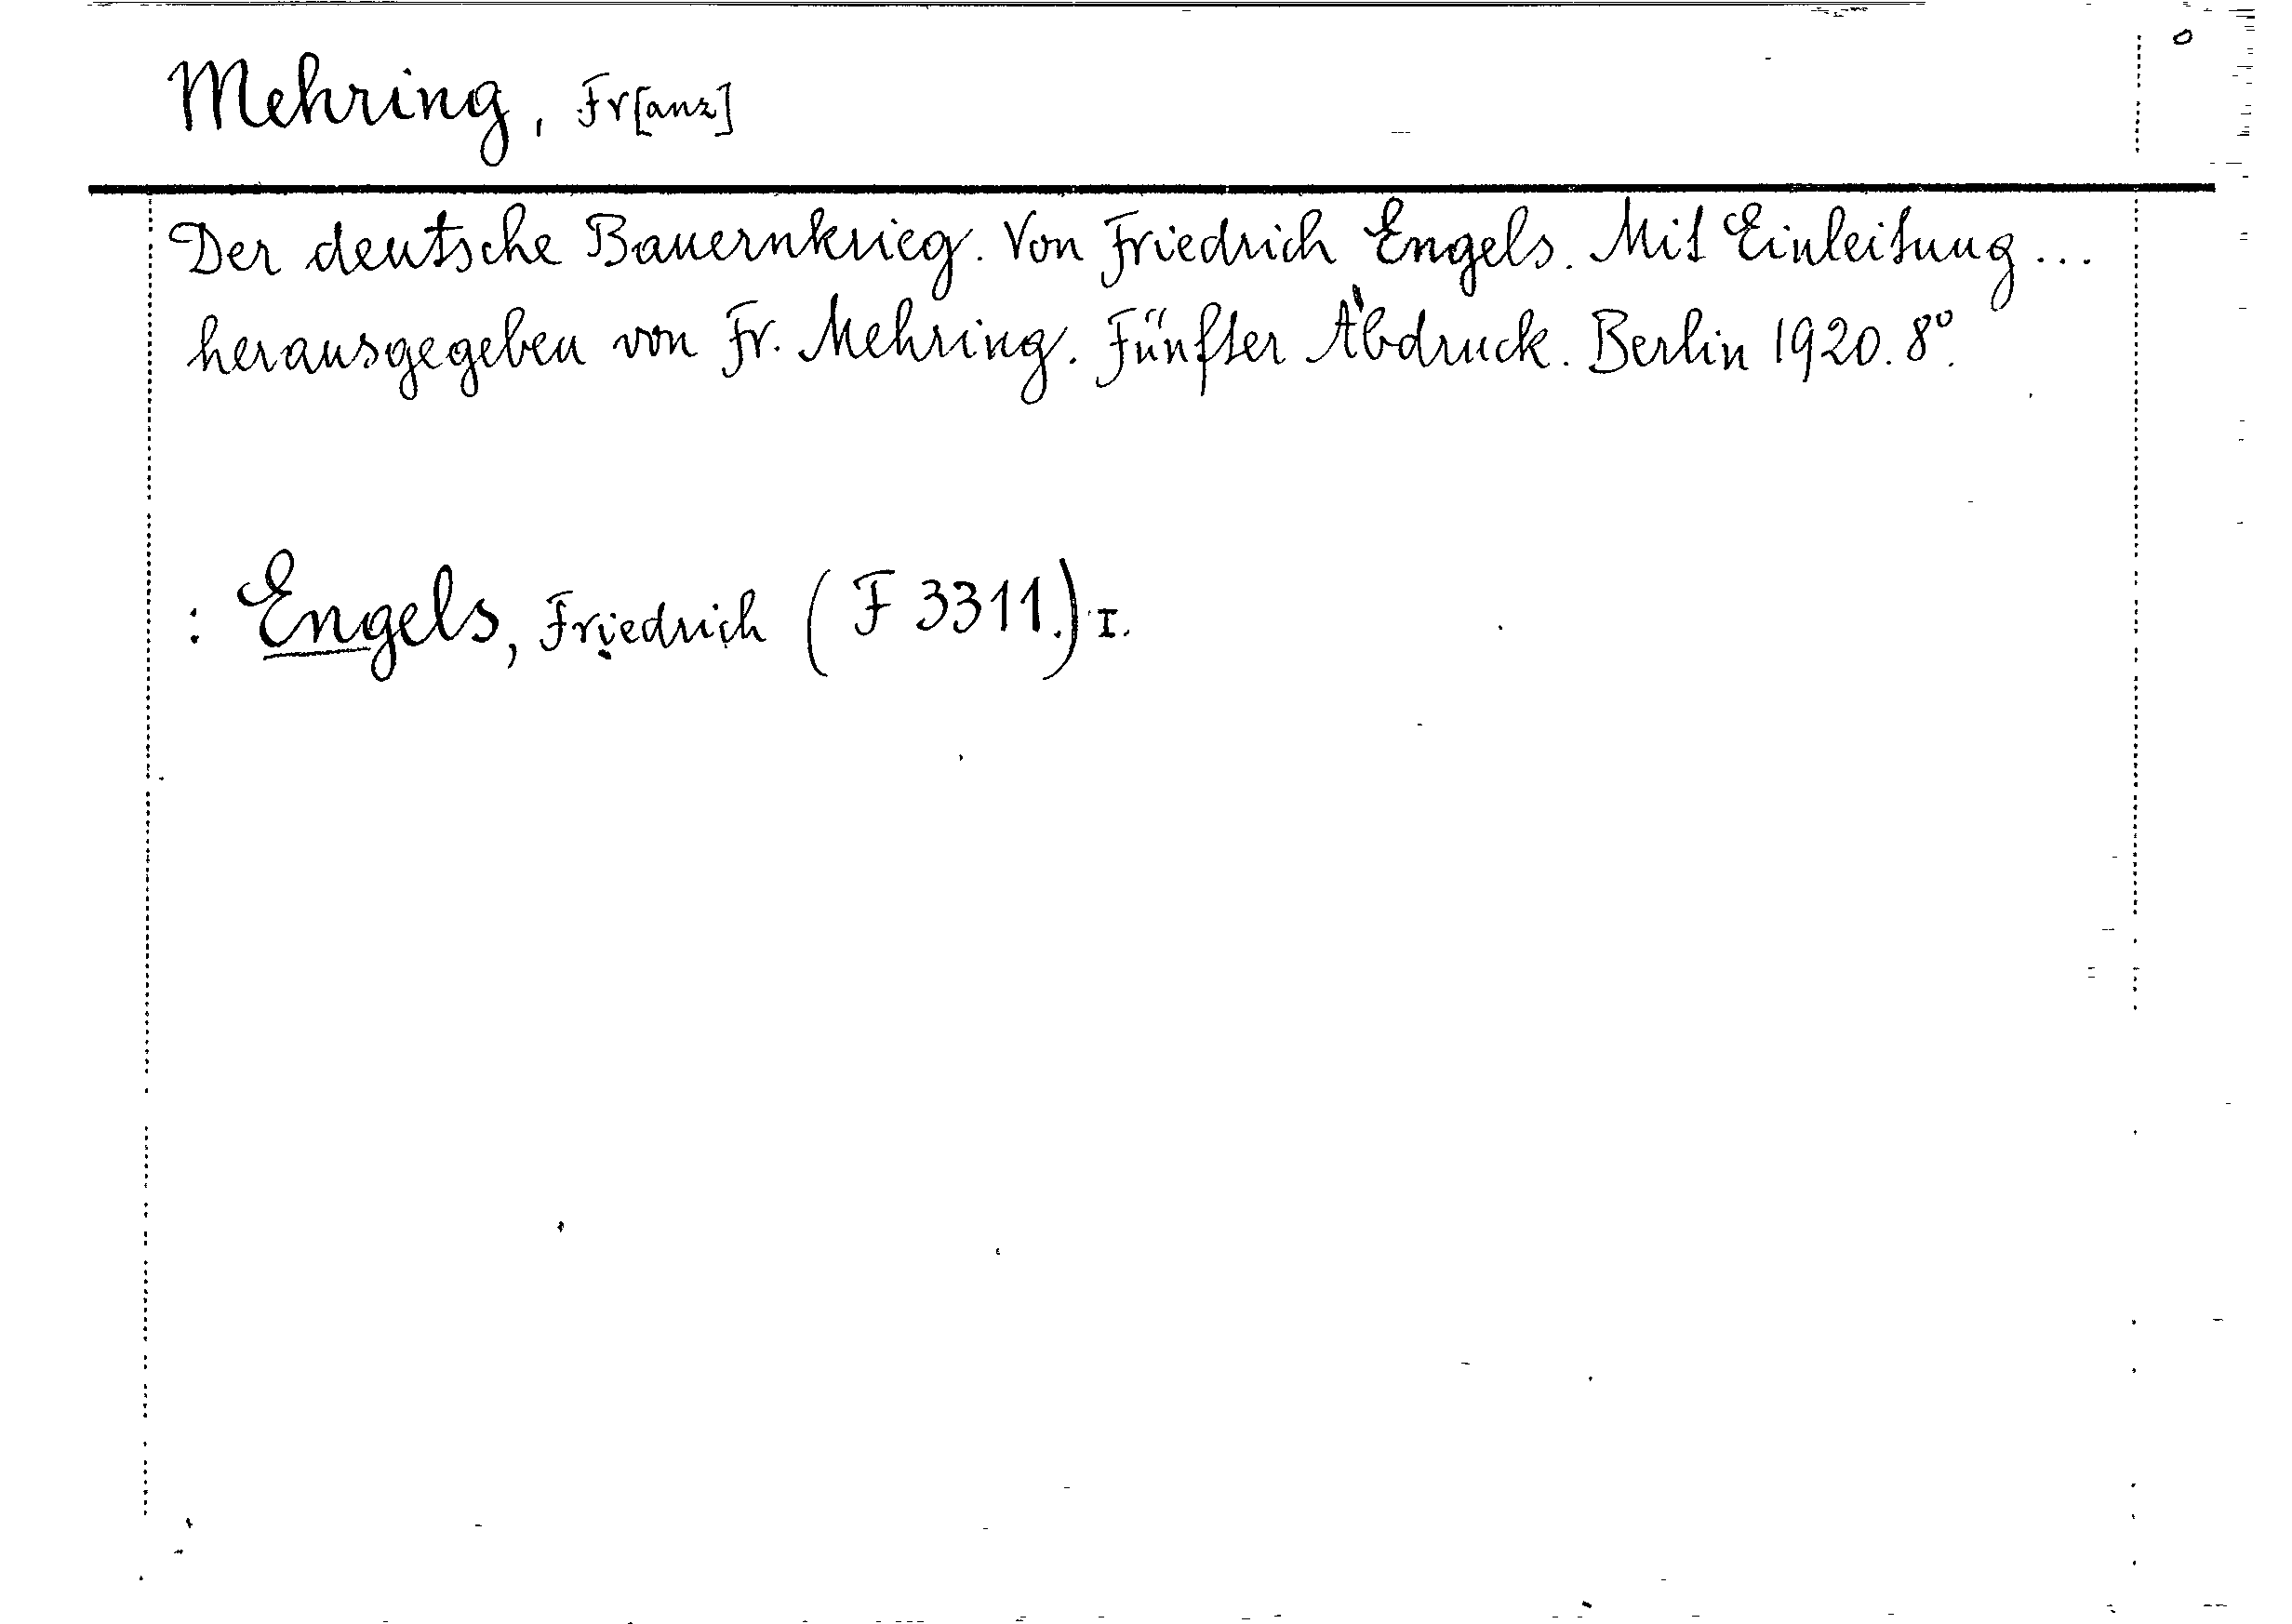 Mehring, Fr[anz]
Der deutsche Bauernkrieg. Von Friedrich Engels. Mit Einleitung...
herausgegeben von Fr. Mehring. Fünfter Abdruck. Berlin 1920. 8°.
: Engels, Friedrich (F 3311.) I.